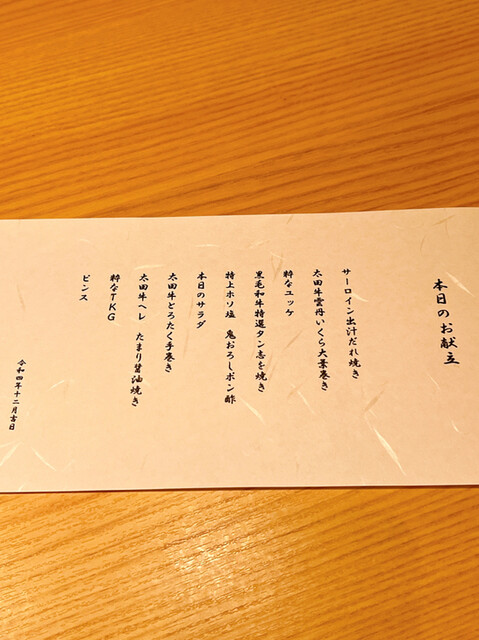 本日のお献立
サーロイン出汁だれ焼き
太田牛雲丹いくら大葉巻き
粋なユッケ
黒毛和牛特選タン志を焼き
特上ホソ塩 鬼おろしポン酢
本日のサラダ
太田牛とろたく手巻き
太田牛ヘレ たまり醤油焼き
粋なTKG
ピンス
令和四年十二月吉日